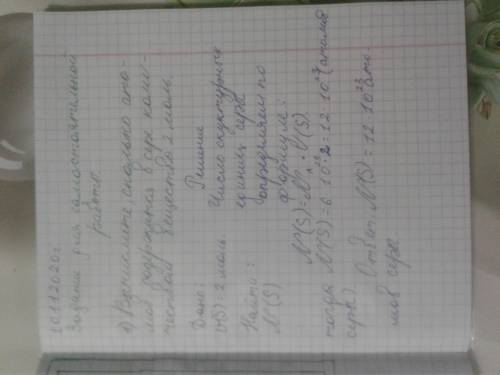 20.11.2020г.
Задания для самостоятельной
работы.
Вычислите, сколько ато-
мов содержится в сере коли-
чеством вещества 2 моль.
Дано: Решение
ν(S) = 2 моль Число структурных
Найти: единиц серы
N(S) определяем по
формуле:
N(S) = Nₐ · ν(S)
тогда N(S) = 6 · 10²³ · 2 = 12 · 10²³ (атомов
серы). Ответ: N(S) = 12 · 10²³ ато-
мов серы